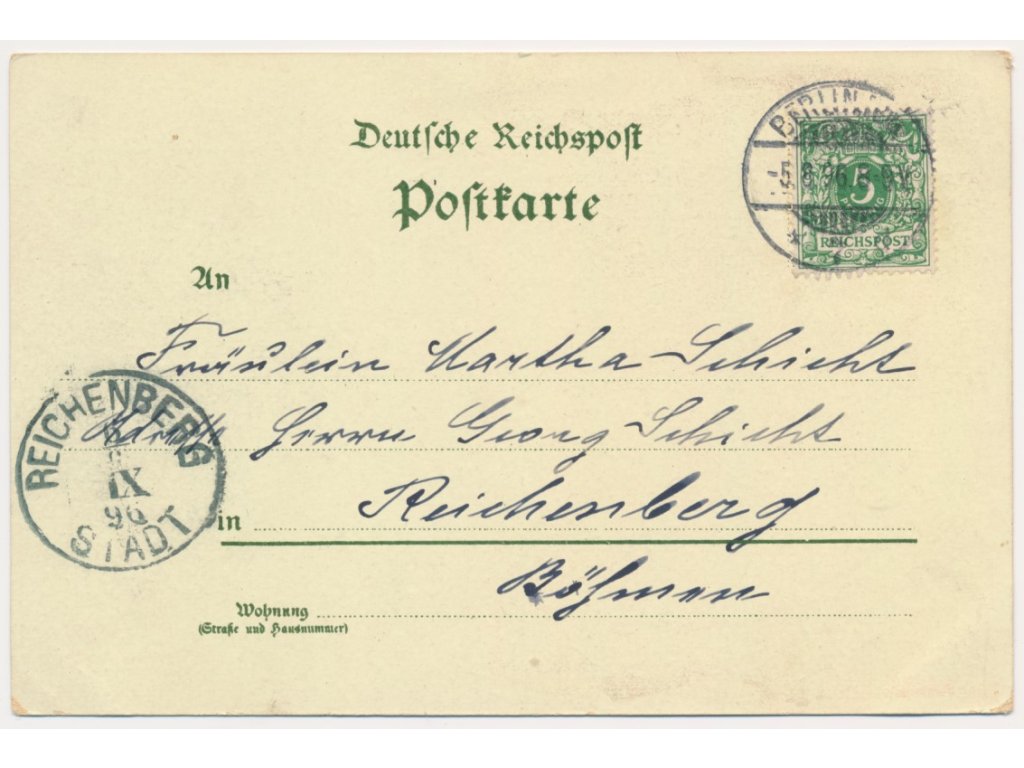 Deutsche Reichspost
Postkarte
BERLIN
96. 5-6N
5
REICHSPOST
An
Fräulein Martha Schicht
Herrn Georg Schicht
in Reichenberg
Böhmen
Wohnung
(Straße und Hausnummer)
REICHENBERG
IX
96
STADT